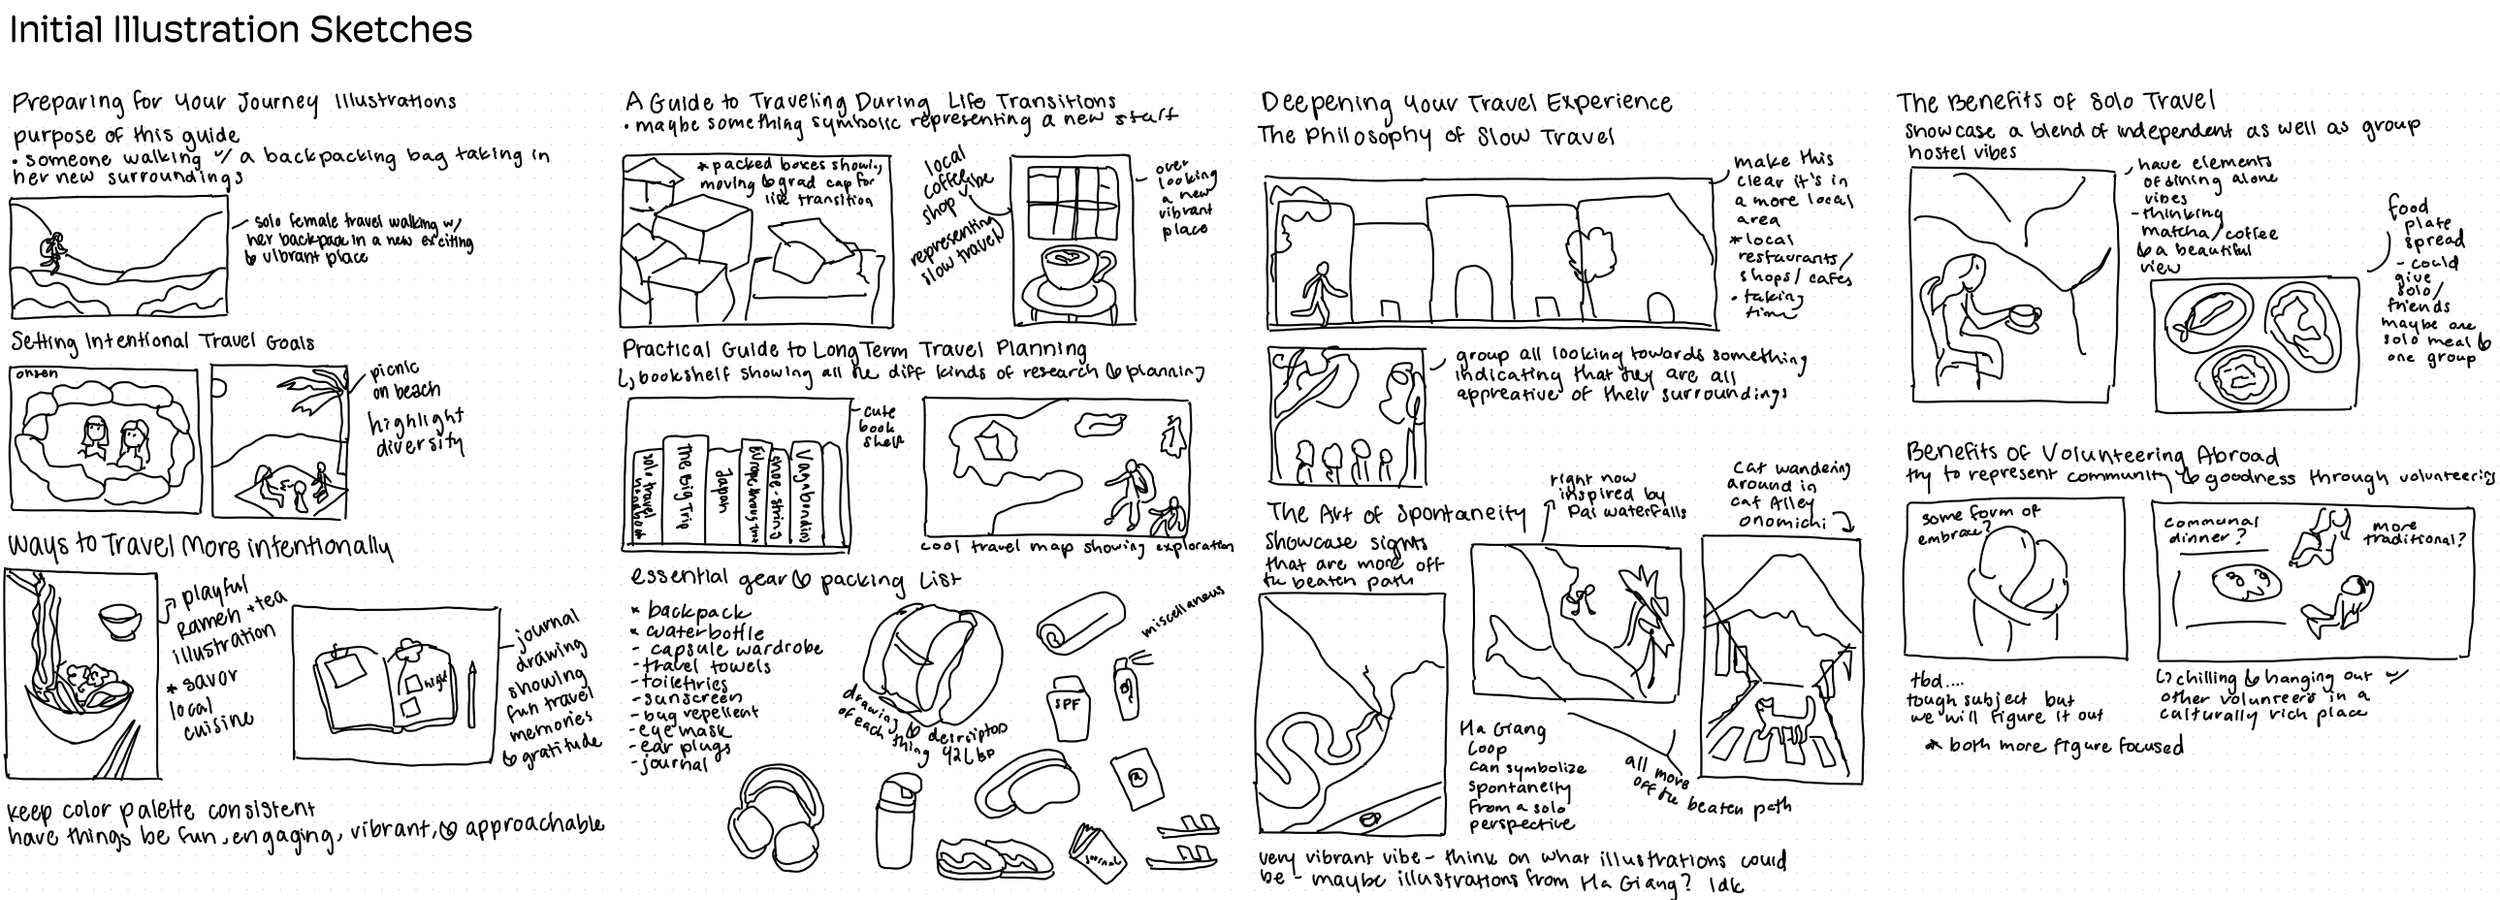 Initial Illustration Sketches
Preparing for your Journey Illustrations
purpose of this guide
• someone walking w/ a backpacking bag taking in
her new surroundings
solo female travel walking w/
her backpack in a new exciting
& vibrant place
Setting Intentional Travel Goals
onsen
picnic
on beach
highlight
diversity
Ways to Travel More intentionally
playful
Ramen + tea
illustration
* savor
local
cuisine
journal
drawing
showing
fun travel
memories
& gratitude
keep color palette consistent
have things be fun, engaging, vibrant, & approachable
A Guide to Traveling During Life Transitions
• maybe something symbolic representing a new start
* packed boxes showing
moving & grad cap for
life transition
local
coffee
shop
vibe
representing
slow travel
over
looking
a new
vibrant
place
Practical Guide to Long Term Travel Planning
↳ bookshelf showing all the diff kinds of research & planning
solo travel
handbook
The Big Trip
Japan
Europe through
shoe-string
Vagabonding
cute
book
shelf
cool travel map showing exploration
essential gear & packing List
* backpack
* waterbottle
- capsule wardrobe
- travel towels
- toiletries
- sunscreen
- bug repellent
- eye mask
- ear plugs
- journal
drawing & descriptors
of each thing
42L BP
miscellaneous
SPF
journal
Deepening your Travel Experience
The Philosophy of Slow Travel
make this
clear it's in
a more local
area
* local
restaurants/
shops/ cafes
• taking
time
group all looking towards something
indicating that they are all
appreative of their surroundings
The Art of Spontaneity
Showcase sights
that are more off
the beaten path
right now
inspired by
Pai waterfalls
cat wandering
around in
cat Alley
onomichi
Ha Giang
Loop
can symbolize
spontaneity
from a solo
perspective
all more
off the beaten path
very vibrant vibe - think on what illustrations could
be - maybe illustrations from Ha Giang? Idk
The Benefits of Solo Travel
showcase a blend of independent as well as group
hostel vibes
have elements
of dining alone
vibes
- thinking
matcha/coffee
& a beautiful
view
food
plate
spread
- could
give
solo/
friends
maybe one
solo meal &
one group
Benefits of Volunteering Abroad
try to represent community & goodness through volunteering
some form of
embrace?
communal
dinner?
more
traditional?
tbd....
tough subject but
we will figure it out
↳ chilling & hanging out w/
other volunteers in a
culturally rich place
* both more figure focused